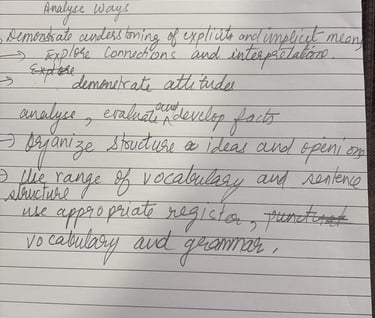 Analyse Ways
Demonstrate understoning of explicit and implicit meany
→ Explore Connections and interpretations.
Explore
demonstrate attitudes
analyse, evaluate and develop facts
→ Organize Structure & ideas and openions
→ Use range of vocabulary and sentence
structure
use appropriate register, punctuat
vocabulary and grammar.